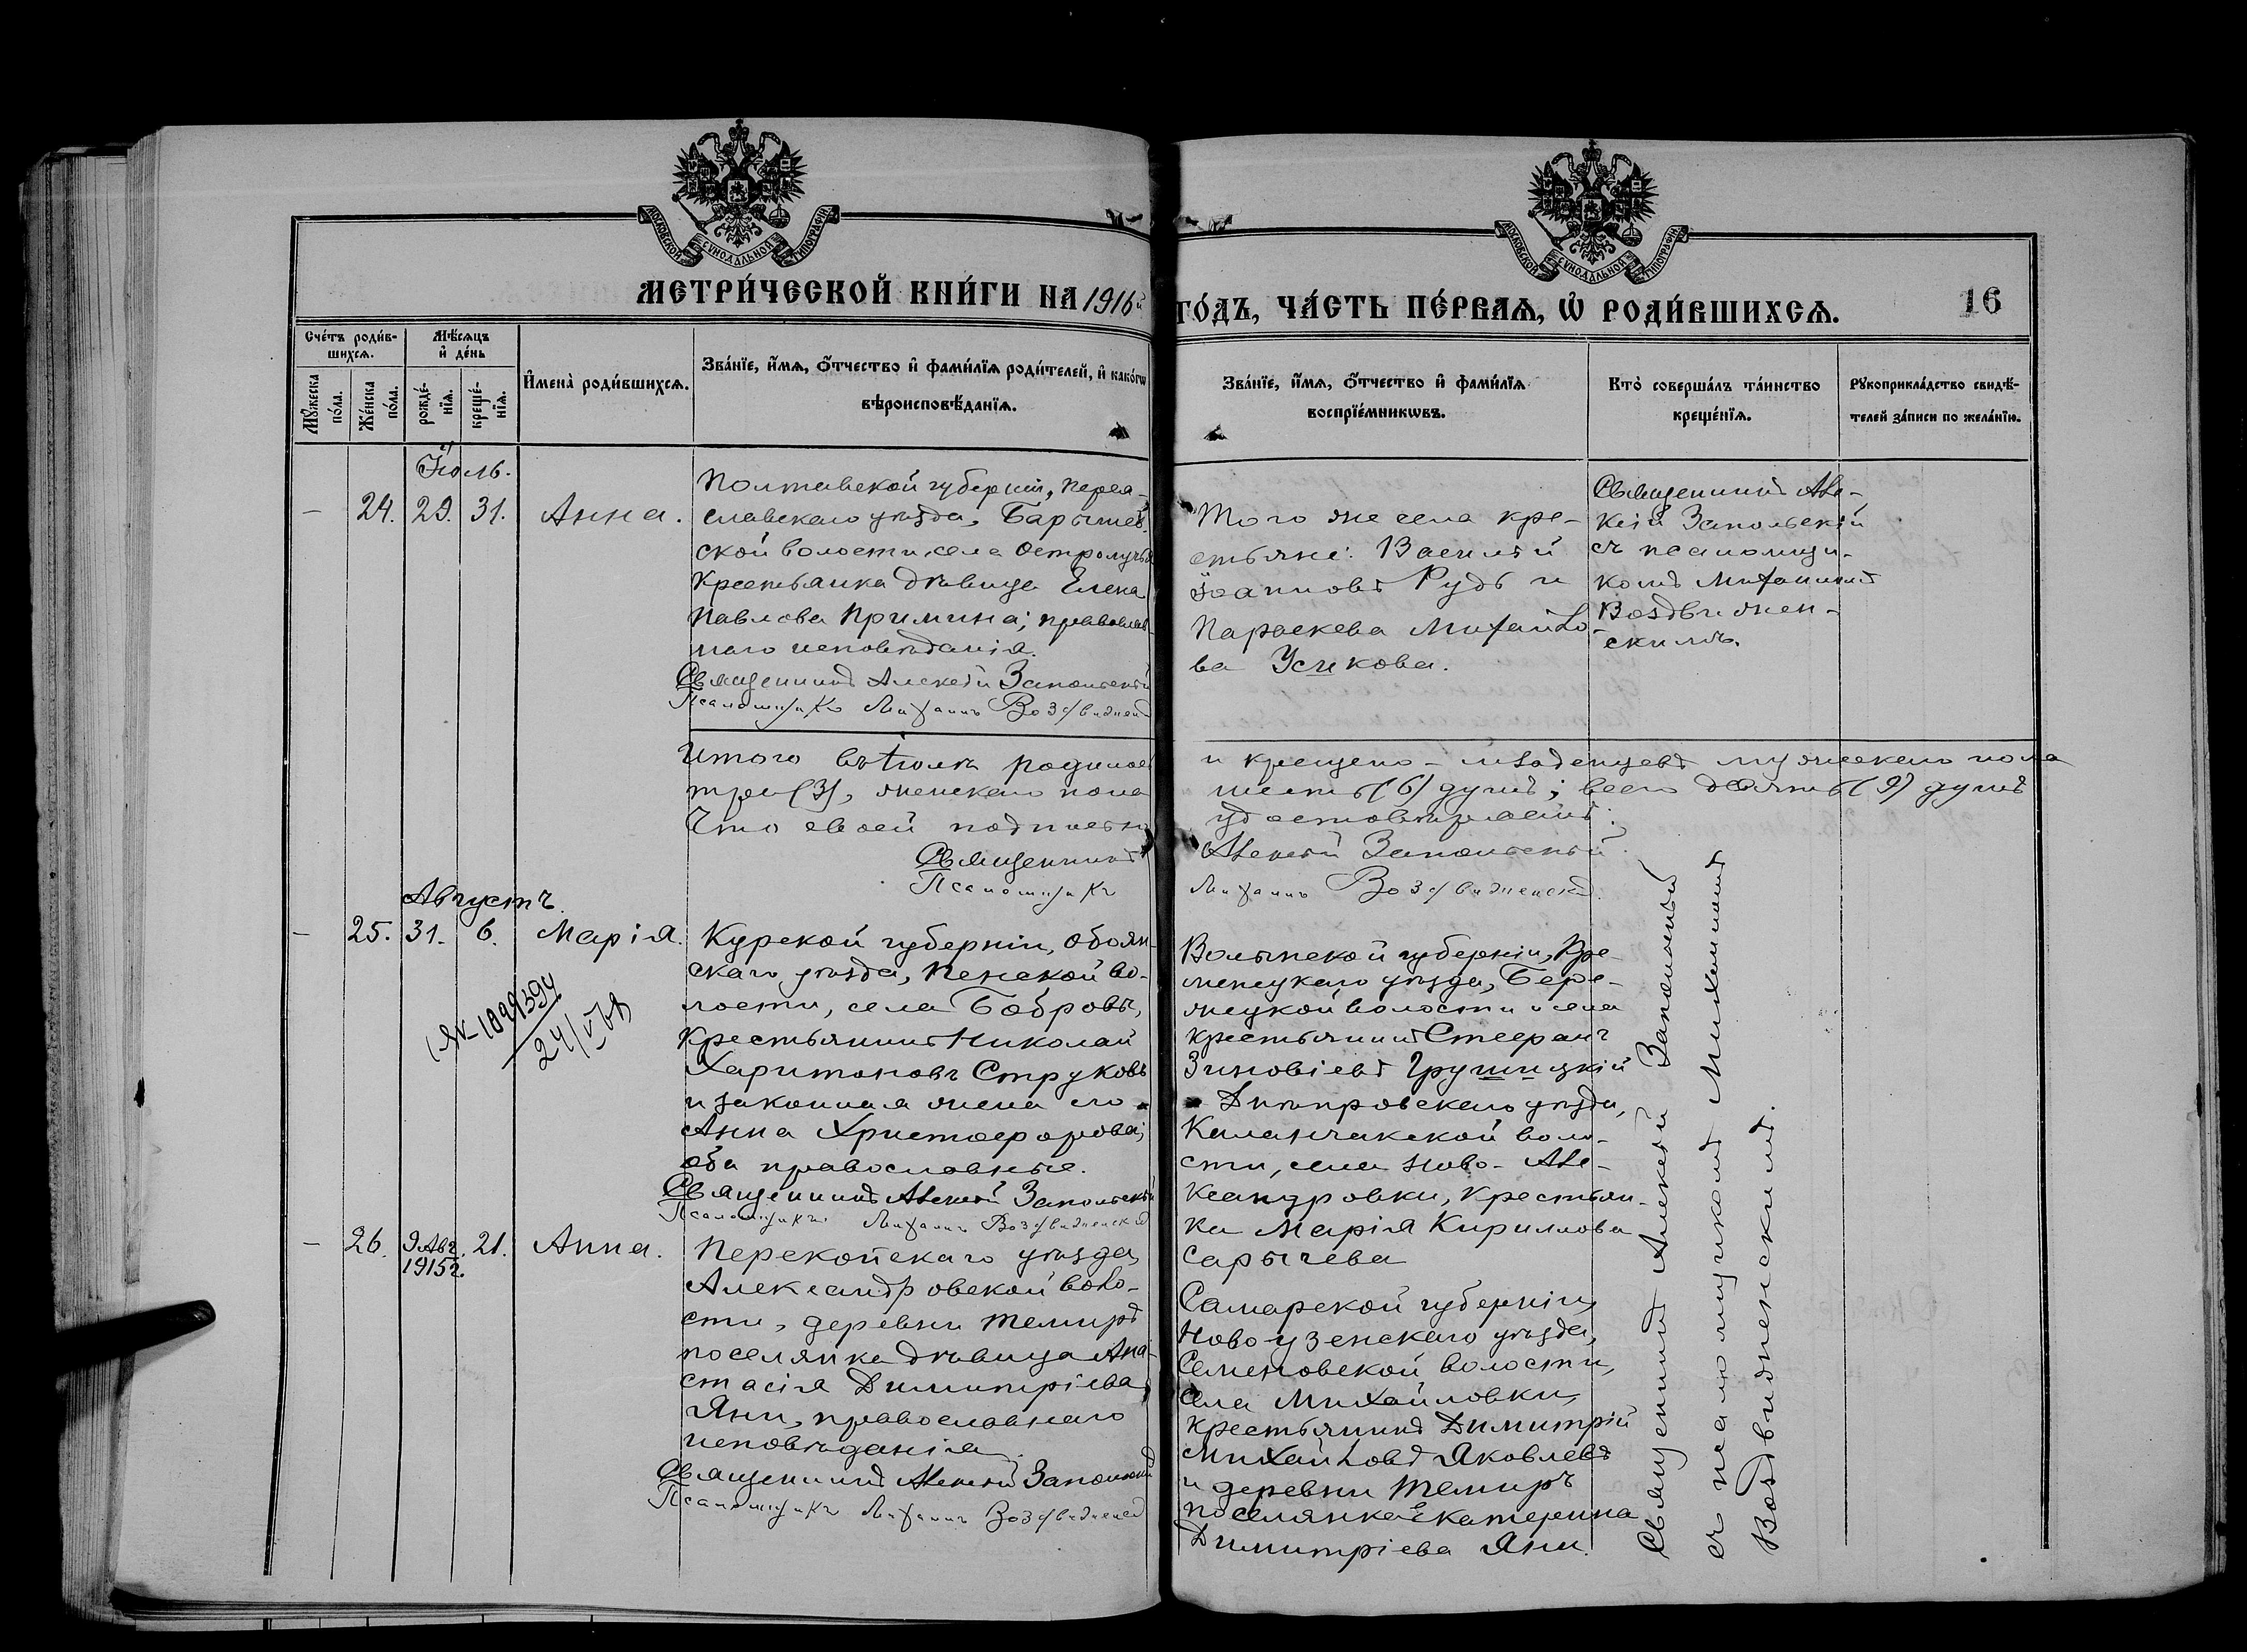 МОСКОВСКОЙ СѴНОДАЛЬНОЙ ТИПОГРАФІИ
МОСКОВСКОЙ СѴНОДАЛЬНОЙ ТИПОГРАФІИ
МЕТРИ́ЧЕСКОЙ КНИ́ГИ НА 1916й
ГО́ДЪ, ЧА́СТЬ ПЕ́РВАѦ, Ѡ҆ РОДИ́ВШИХСѦ.
16
Сче́тъ роди́в-
шихсѧ.
Мѣ́сѧцъ
и҆ де́нь
Мꙋ́жеска
по́ла.
Же́нска
по́ла.
рожде́-
нїѧ.
креще́-
нїѧ.
И҆мена̀ роди́вшихсѧ.
Зва́нїе, и҆́мѧ, ѻ҆́тчество и҆ фами́лїѧ роди́телей, и҆ како́гѡ
вѣроисповѣ́данїѧ.
Зва́нїе, и҆́мѧ, ѻ҆́тчество и҆ фами́лїѧ
воспрїе́мникѡвъ.
Кто̀ соверша́лъ та́инство
креще́нїѧ.
Рꙋкоприкла́дство свидѣ́-
телей за́писи по жела́нїю.
Іюль.
— 24. 29. 31. Анна.
Полтавской губерніи, Перея-
славскаго уѣзда, Барышев-
ской волости, села Остролучья
крестьянка дѣвица Елена
Павлова Примина; православ-
наго исповѣданія.
Священникъ Алексѣй Запольскій
Псаломщикъ Михаилъ Воздвиженск
Того же села кре-
стьяне: Василій
Іоанновъ Рудь и
Параскева Михайло-
ва Усикова.
Священникъ Але-
ксій Запольскій
съ псаломщи-
комъ Михаиломъ
Воздвижен-
скимъ.
Итого въ іюлѣ родилось
три (3), женскаго пола
Что своей подписью
Священникъ
Псаломщикъ
и крещено - младенцевъ мужескаго пола
шесть (6) душъ; всего девять (9) душъ
удостовѣряемъ:
Алексѣй Запольскій.
Михаилъ Воздвиженскій.
Августъ.
— 25. 31. 6. Марія.
ЯК-1099394
24/V
Курской губерніи, Обоян-
скаго уѣзда, Пенской во-
лости, села Бобровы,
крестьянинъ Николай
Харитоновъ Струковъ
и законная жена его
Анна Христофорова;
оба православные.
Священникъ Алексѣй Запольскій
Псаломщикъ Михаилъ Воздвиженскій
Волынской губерніи, Кре-
менецкаго уѣзда, Бере-
жецкой волости и села
крестьянинъ Стефанъ
Зиновіевъ Грушицкій
Днѣпровскаго уѣзда,
Каланчакской воло-
сти, села Ново-Але-
ксандровки, крестьян-
ка Марія Кириллова
Сарычева
— 26. 9 Авг. 21. Анна.
1915г.
Перекопскаго уѣзда,
Александровской воло-
сти, деревни Темиръ
поселянка дѣвица Ана-
стасія Димитріева
Яни, православнаго
исповѣданія.
Священникъ Алексѣй Запольскій
Псаломщикъ Михаилъ Воздвиженск
Самарской губерніи,
Новоузенскаго уѣзда,
Семеновской волости,
села Михайловки,
крестьянинъ Димитрій
Михайловъ Яковлевъ
и деревни Темиръ
поселянка Екатерина
Димитріева Яни.
Священникъ Алексѣй Запольскій
съ псаломщикомъ Михаиломъ
Воздвиженскимъ.